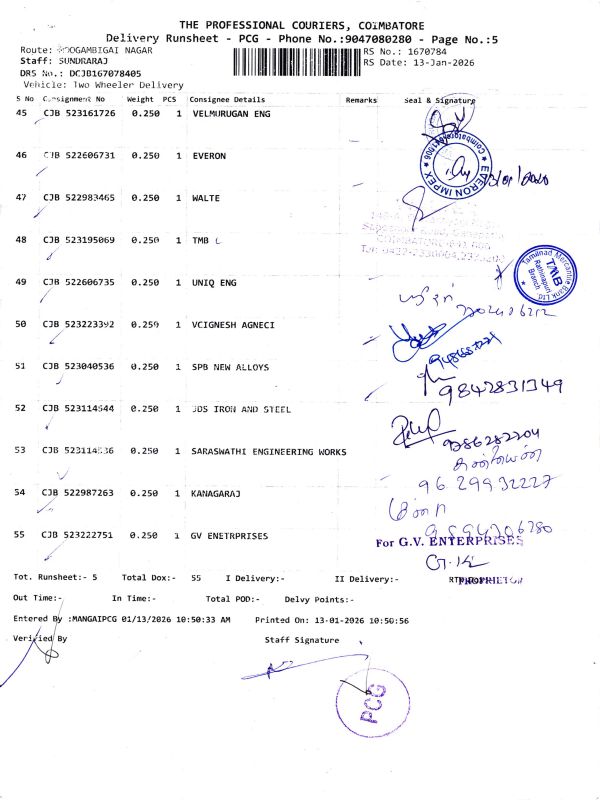 THE PROFESSIONAL COURIERS, COIMBATORE
Delivery Runsheet - PCG - Phone No.:9047080280 - Page No.:5
Route: MOOGAMBIGAI NAGAR
RS No.: 1670784
Staff: SUNDRARAJ
RS Date: 13-Jan-2026
DRS No.: DCJB167078405
Vehicle: Two Wheeler Delivery
S No Consignment No Weight PCS Consignee Details Remarks Seal & Signature
45 CJB 523161726 0.250 1 VELMURUGAN ENG
46 CJB 522606731 0.250 1 EVERON
EVERON IMPEX
47 CJB 522983465 0.250 1 WALTE
48 CJB 523195069 0.250 1 TMB
Tamilnad Mercantile Bank Ltd.
TMB
Rathinapuri
Branch
49 CJB 522606735 0.250 1 UNIQ ENG
50 CJB 523223392 0.250 1 VCIGNESH AGNECI
51 CJB 523040536 0.250 1 SPB NEW ALLOYS
9842831349
52 CJB 523114544 0.250 1 JDS IRON AND STEEL
53 CJB 523114536 0.250 1 SARASWATHI ENGINEERING WORKS
96 29932227
54 CJB 522987263 0.250 1 KANAGARAJ
55 CJB 523222751 0.250 1 GV ENETRPRISES
For G.V. ENTERPRISES
PROPRIETOR
Tot. Runsheet:- 5 Total Dox:- 55 I Delivery:- II Delivery:-
Out Time:- In Time:- Total POD:- Delvy Points:-
Entered By :MANGAIPCG 01/13/2026 10:50:33 AM Printed On: 13-01-2026 10:50:56
Verified By Staff Signature
PCG